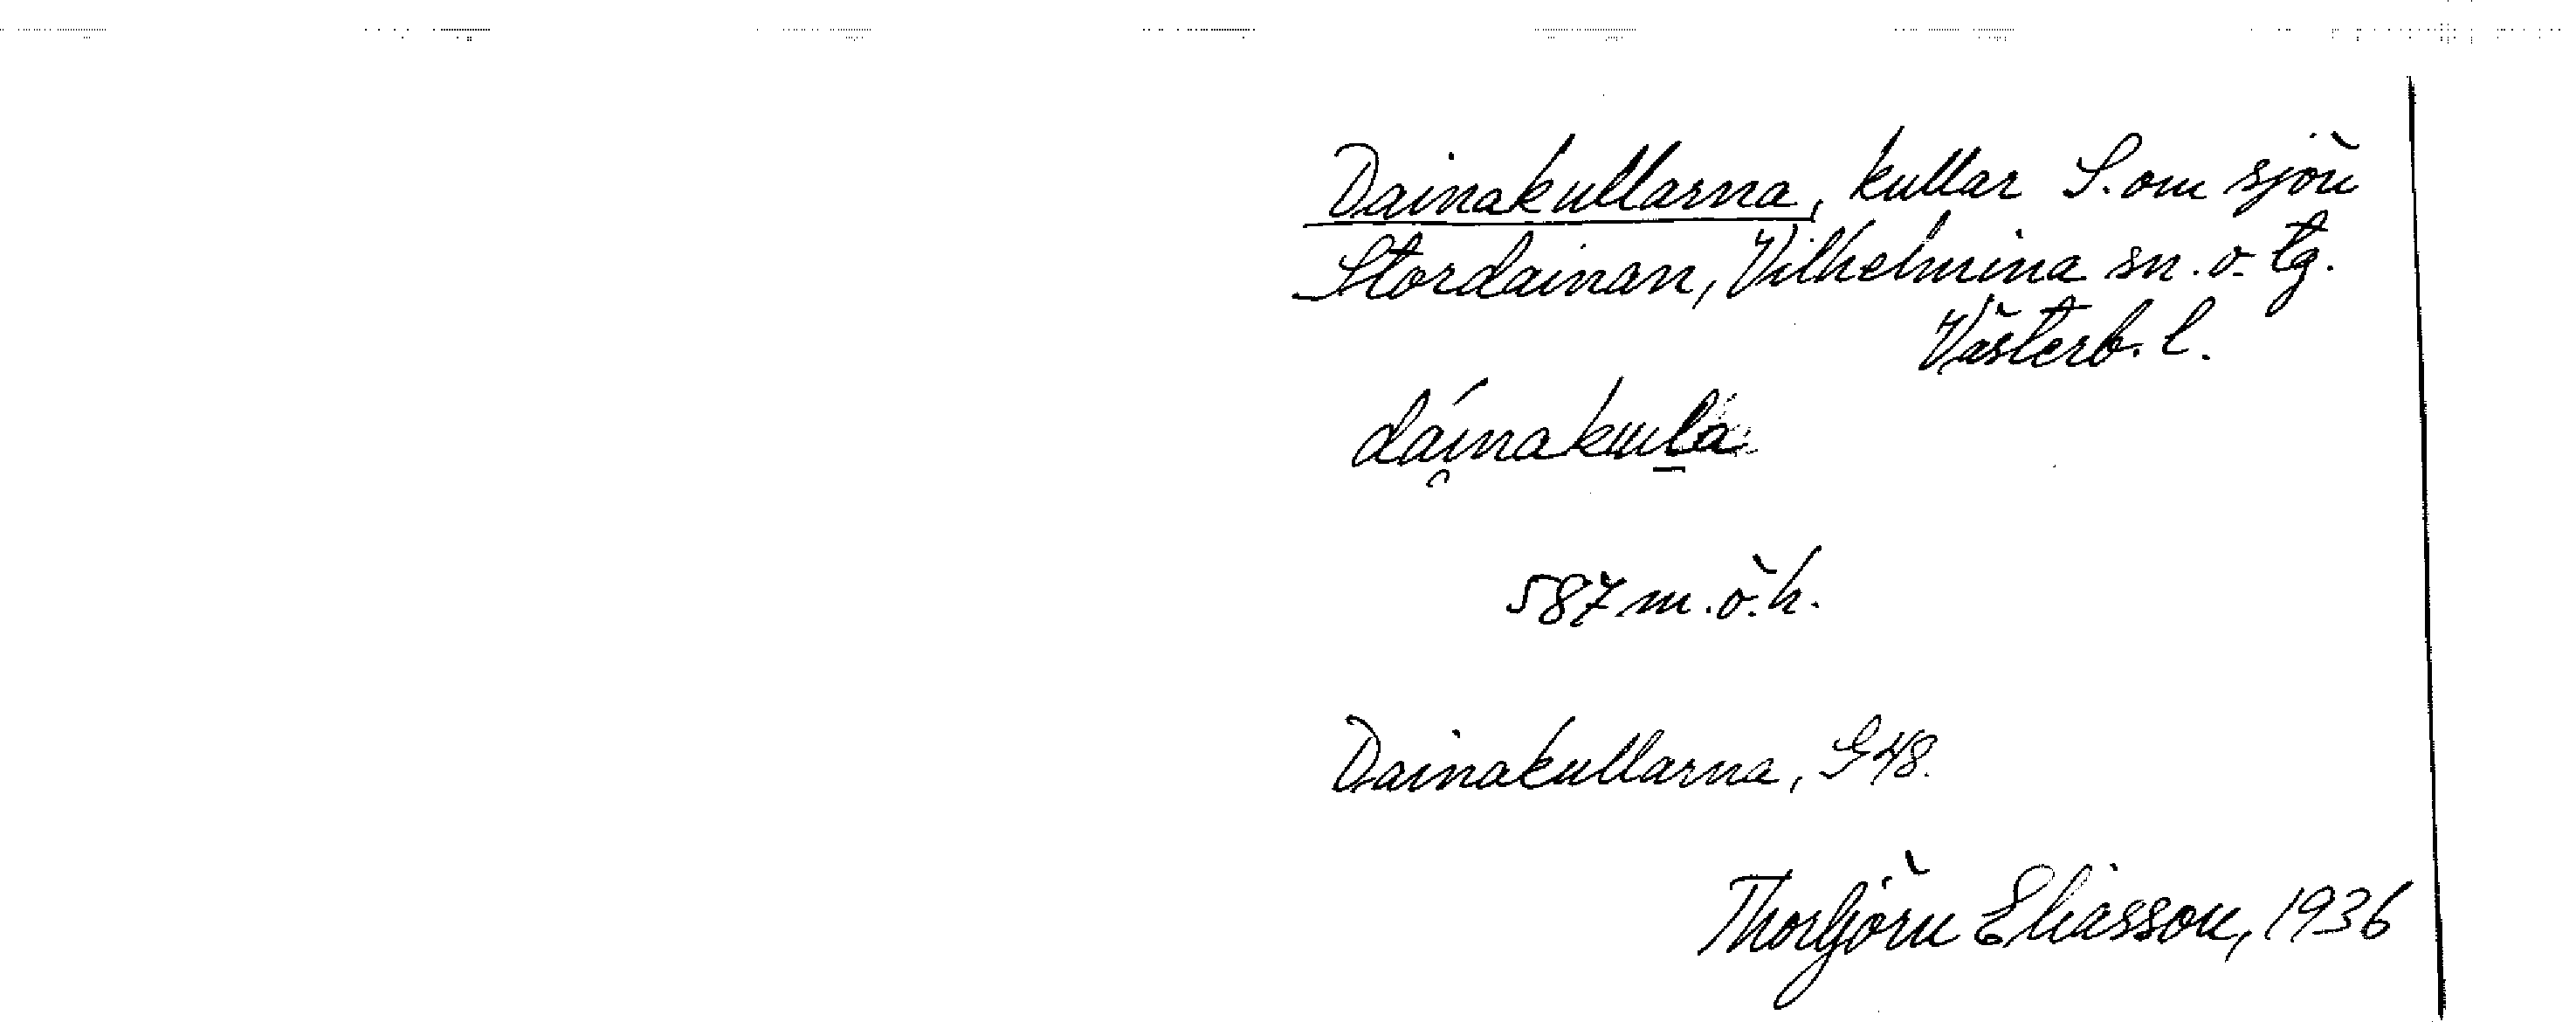 Dainakullarna, kullar S. om sjön
Stordainan, Vilhelmina sn. o. tg.
Västerb. l.
dái̯nakul̲a
587 m. ö. h.
Dainakullarna, G 48.
Thorbjörn Eliasson, 1936